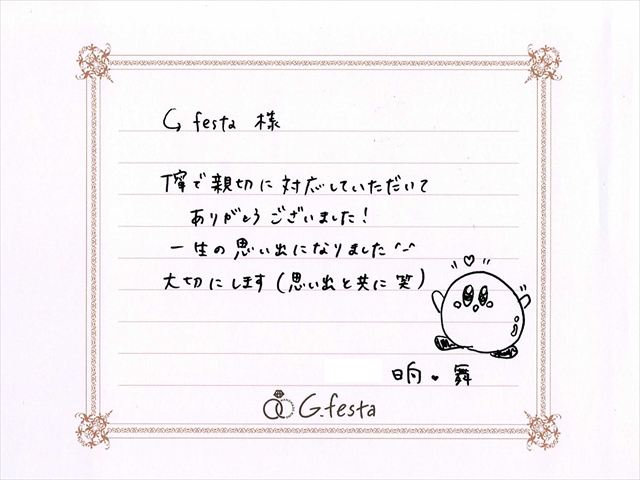 G festa 様
丁寧で親切に対応していただいて
ありがとうございました!
一生の思い出になりました^-^
大切にします(思い出と共に笑)
日向♥舞
G.festa